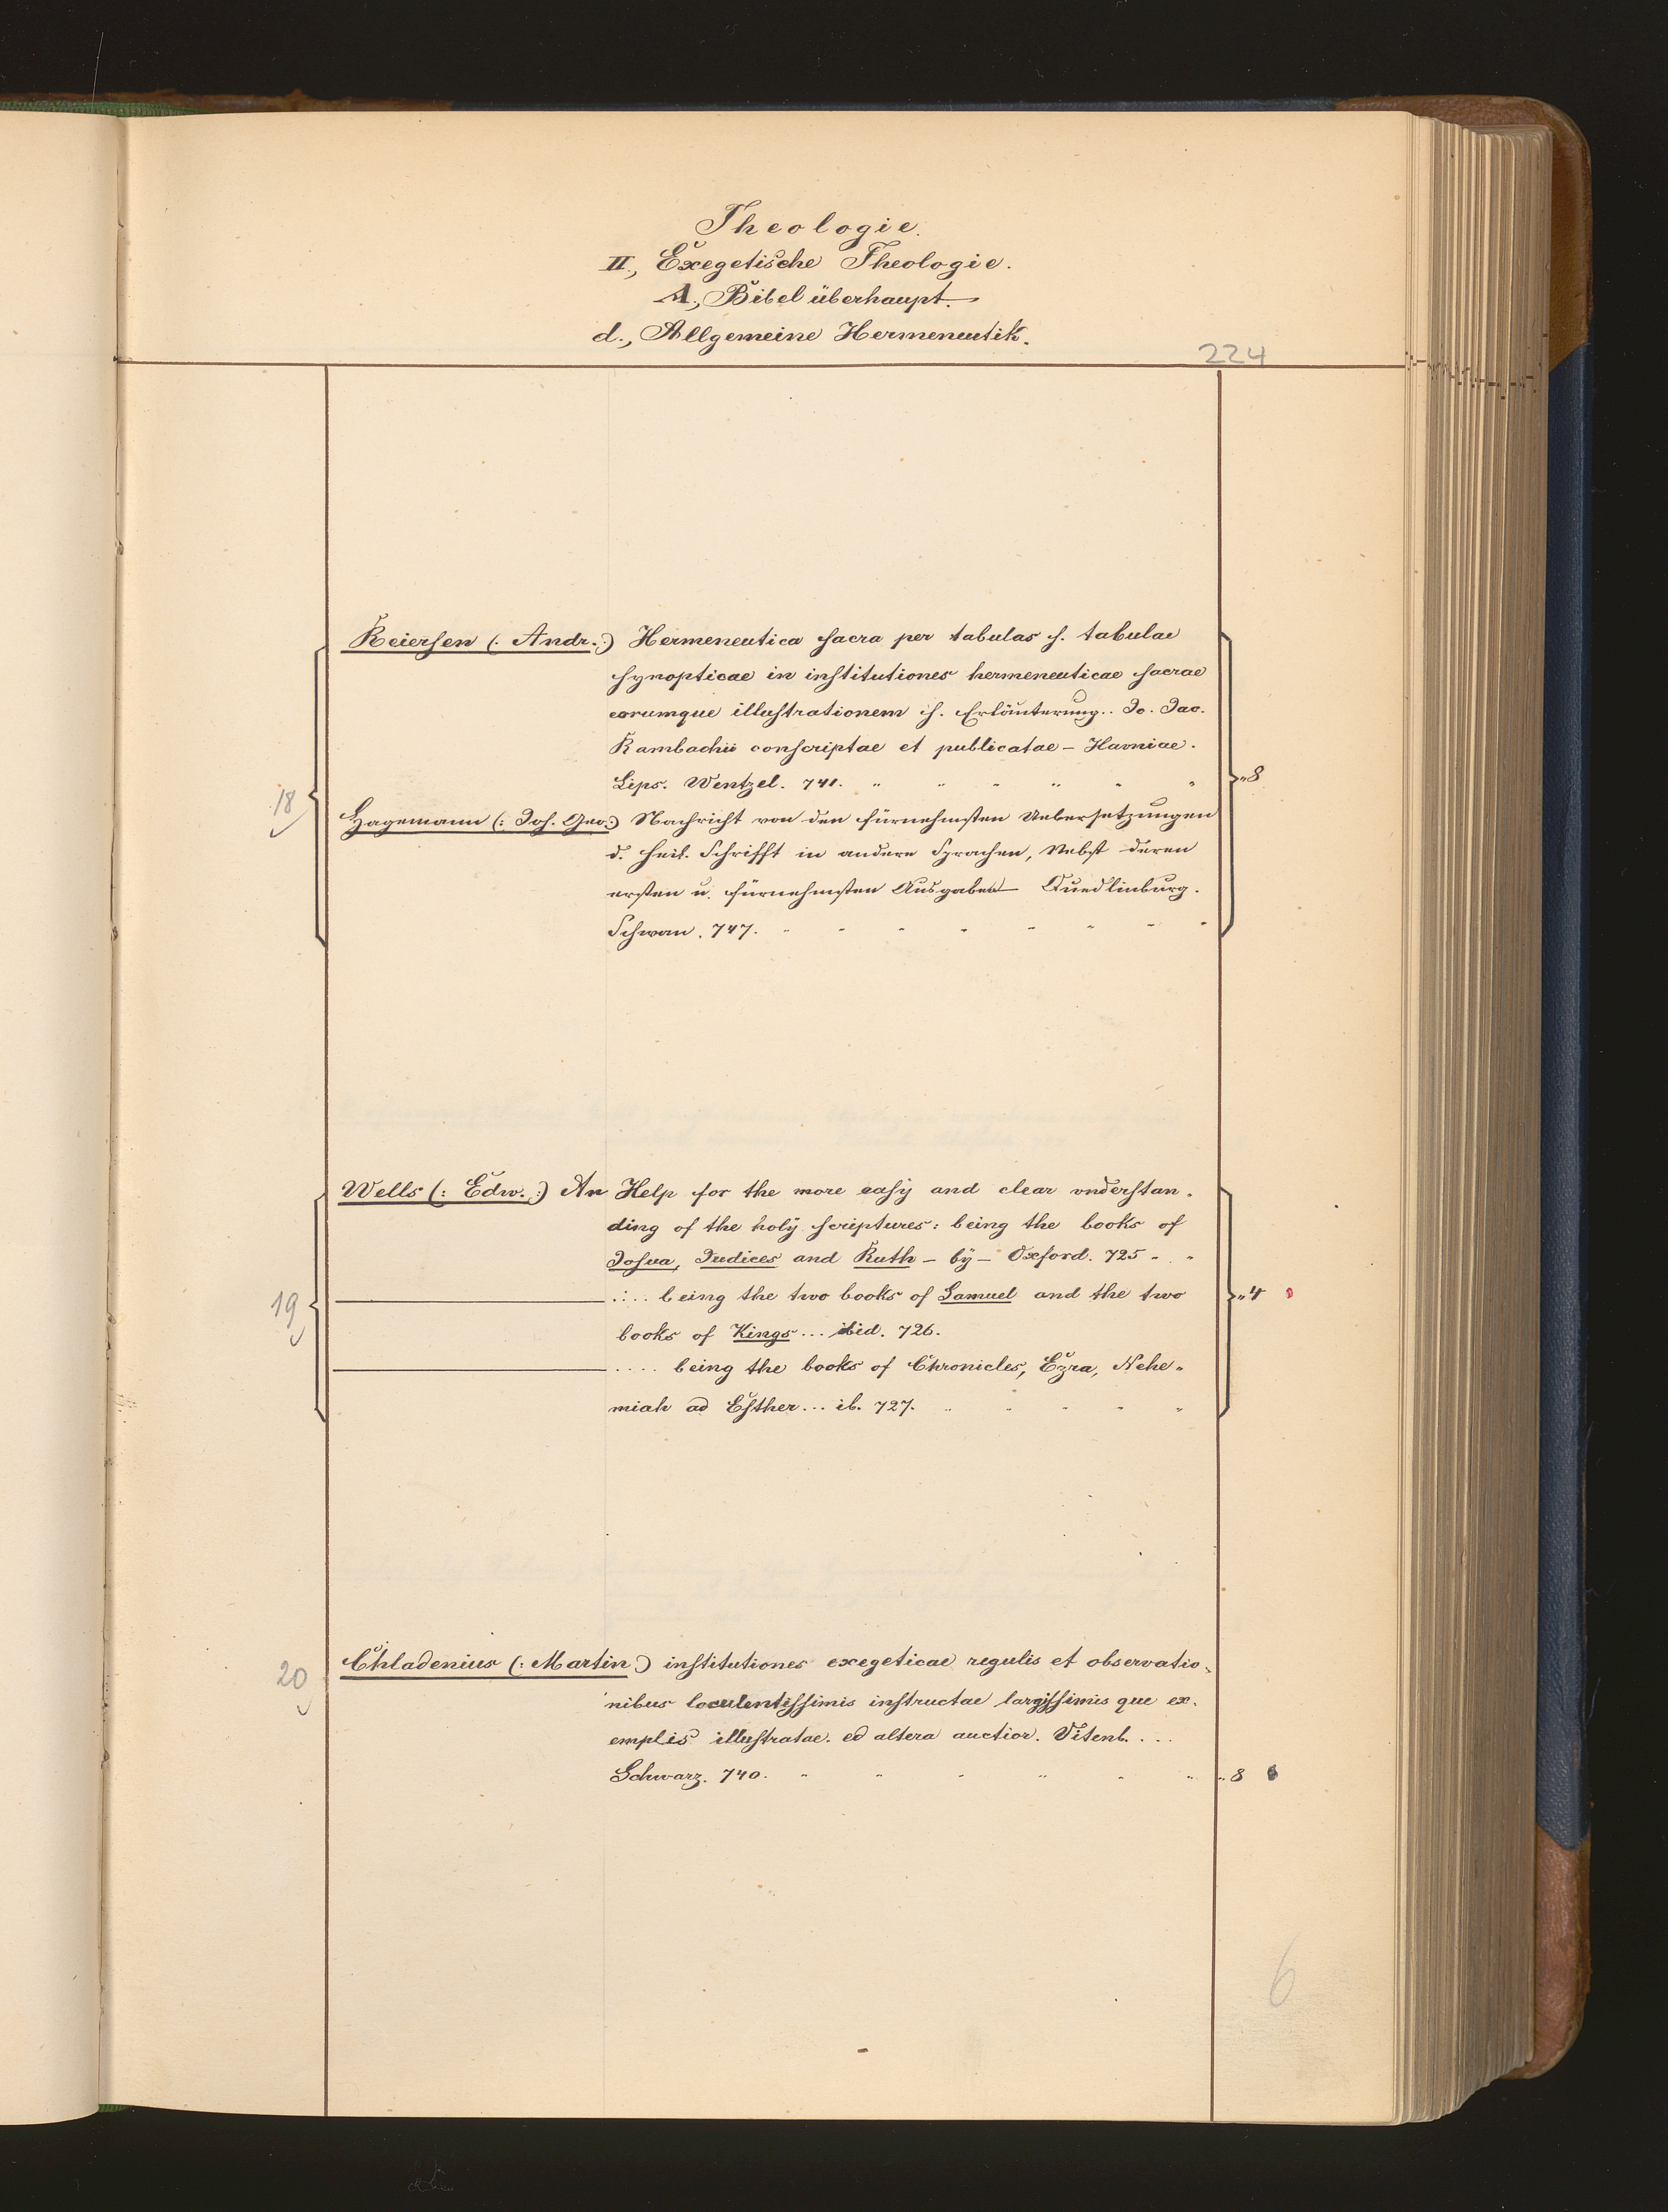 Theologie.
II., Exegetische Theologie.
A., Bibel überhaupt.
d., Allgemeine Hermeneutik.
224
Reiersen (: Andr. :) Hermeneutica sacra per tabulas s. tabulae
synopticae in institutiones hermeneuticae sacrae
eorumque illustrationem s. Erläuterung.. Jo. Jac.
Rambachii conscriptae et publicatae – Havniae.
18 Lips. Wentzel. 741. „ „ „ „ „ „ „8
Hagemann (: Joh. Geo. :) Nachricht von den fürnehmsten Uebersetzungen
d. heil. Schrifft in andere Sprachen, Nebst deren
ersten u. fürnehmsten Ausgaben – Quedlinburg.
Schwan. 747.
Wells (: Edw. :) An Help for the more easy and clear vnderstan-
ding of the holy scriptures: being the books of
Josua, Judices and Ruth – by – Oxford. 725 - . "
19 .... being the two books of Samuel and the two „4
books of Kings ... ibid. 726.
.... being the books of Chronicles, Ezra, Nehe-
miah ad Esther ... ib. 727. „ „ „ „ „
20 Chladenius (: Martin :) institutiones exegeticae regulis et observatio-
nibus loculentissimis instructae largissimis que ex-
emplis illustratae. ed altera auctior. Vitenb. ...
Schwarz. 740. „ „ „ „ „ „ „8
6